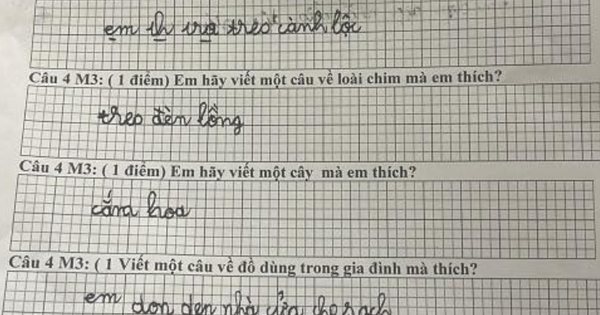 em th trả treo cành lộc
Câu 4 M3: ( 1 điểm) Em hãy viết một câu về loài chim mà em thích?
treo đèn lồng
Câu 4 M3: ( 1 điểm) Em hãy viết một cây mà em thích?
cắm hoa
Câu 4 M3: ( 1 Viết một câu về đồ dùng trong gia đình mà thích?
em dọn dẹp nhà cửa cho sạch